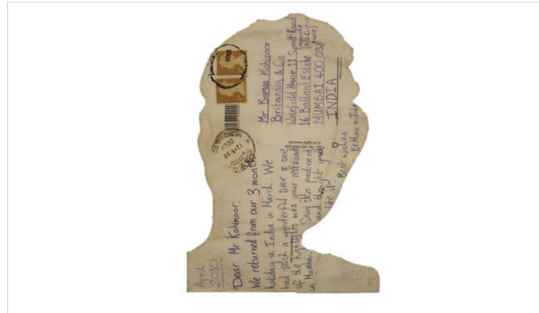 April
2010
Dear Mr Kohinoor,
We returned from our 3 month
holiday in India in March. We
had such a wonderful time & one
of the highlights was your restaurant
in Mumbai. Saw this postcard
and thought you'd
like it.
Best wishes
Mr Boman Kohinoor
Britannia & Co
Wakefield House 11 Sprott Road
16 Ballard Estate
MUMBAI 400 038
INDIA